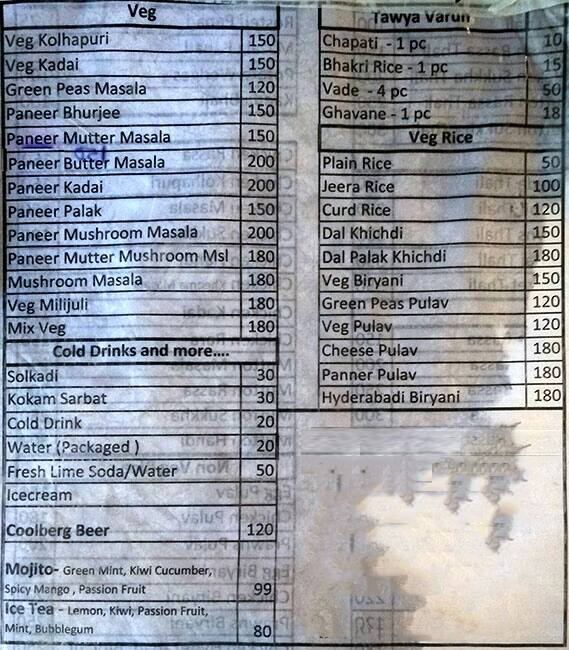 Veg
Veg Kolhapuri 150
Veg Kadai 150
Green Peas Masala 120
Paneer Bhurjee 150
Paneer Mutter Masala 150
Paneer Butter Masala 200
Paneer Kadai 200
Paneer Palak 150
Paneer Mushroom Masala 200
Paneer Mutter Mushroom Msl 180
Mushroom Masala 180
Veg Milijuli 180
Mix Veg 180
Cold Drinks and more....
Solkadi 30
Kokam Sarbat 30
Cold Drink 20
Water (Packaged ) 20
Fresh Lime Soda/Water 50
Icecream
Coolberg Beer 120
Mojito- Green Mint, Kiwi Cucumber,
Spicy Mango , Passion Fruit 99
Ice Tea - Lemon, Kiwi, Passion Fruit,
Mint, Bubblegum 80
Tawya Varun
Chapati - 1 pc 10
Bhakri Rice - 1 pc 15
Vade - 4 pc 50
Ghavane - 1 pc 18
Veg Rice
Plain Rice 50
Jeera Rice 100
Curd Rice 120
Dal Khichdi 150
Dal Palak Khichdi 180
Veg Biryani 150
Green Peas Pulav 120
Veg Pulav 120
Cheese Pulav 180
Panner Pulav 180
Hyderabadi Biryani 180